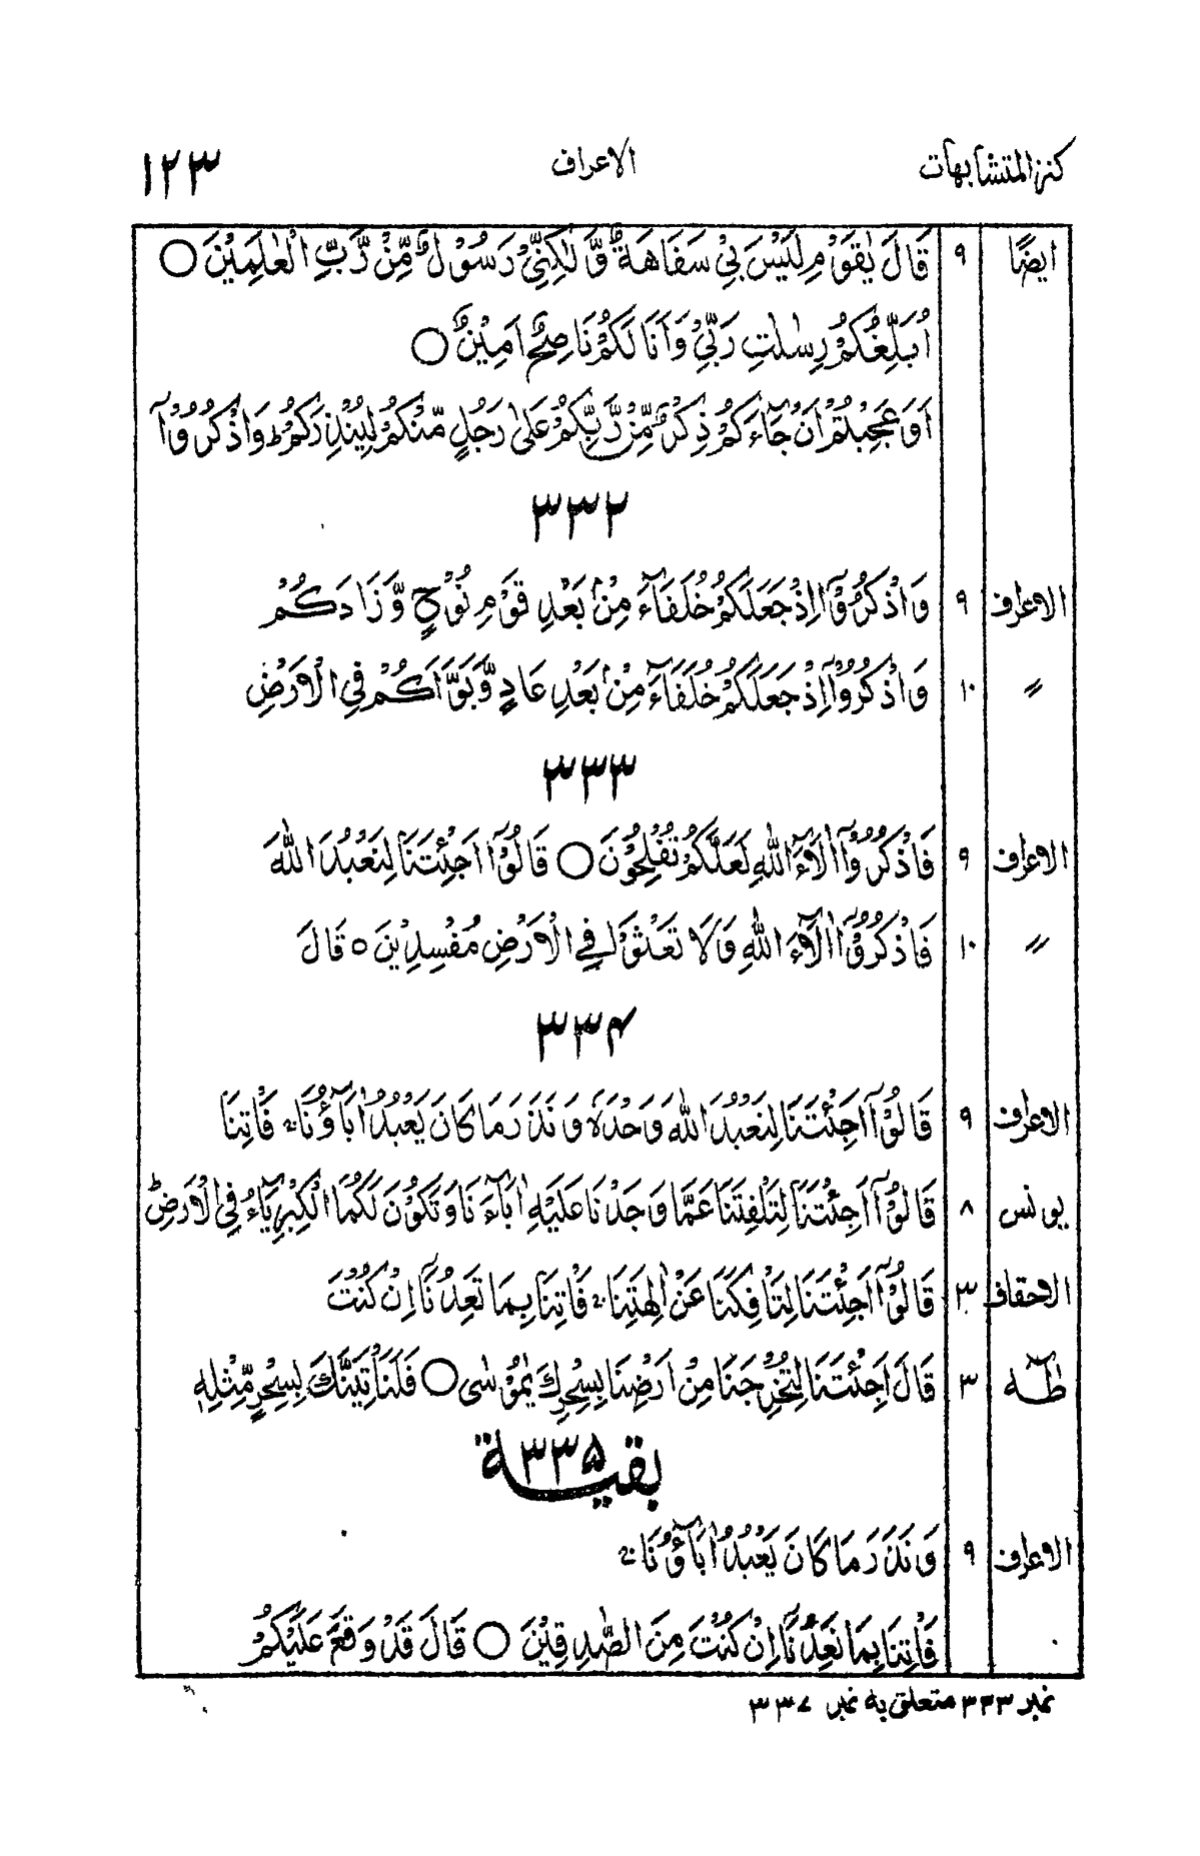 كنز المتشابهات الاعراف ١٢٣
ايضًا ٩ قَالَ يٰقَوْمِ لَيْسَ بِيْ سَفَاهَةٌ وَّلٰكِنِّيْ رَسُوْلٌ مِّنْ رَّبِّ الْعٰلَمِيْنَ ○
اُبَلِّغُكُمْ رِسٰلٰتِ رَبِّيْ وَاَنَا لَكُمْ نَاصِحٌ اَمِيْنٌ ○
اَوَعَجِبْتُمْ اَنْ جَآءَكُمْ ذِكْرٌ مِّنْ رَّبِّكُمْ عَلٰى رَجُلٍ مِّنْكُمْ لِيُنْذِرَكُمْ ؕ وَاذْكُرُوْٓا
٣٣٢
الاعراف ٩ وَاذْكُرُوْٓا اِذْ جَعَلَكُمْ خُلَفَآءَ مِنْۢ بَعْدِ قَوْمِ نُوْحٍ وَّزَادَكُمْ
〃 ١٠ وَاذْكُرُوْٓا اِذْ جَعَلَكُمْ خُلَفَآءَ مِنْۢ بَعْدِ عَادٍ وَّبَوَّاَكُمْ فِى الْاَرْضِ
٣٣٣
الاعراف ٩ فَاذْكُرُوْٓا اٰلَآءَ اللّٰهِ لَعَلَّكُمْ تُفْلِحُوْنَ ○ قَالُوْٓا اَجِئْتَنَا لِنَعْبُدَ اللّٰهَ
〃 ١٠ فَاذْكُرُوْٓا اٰلَآءَ اللّٰهِ وَلَا تَعْثَوْا فِى الْاَرْضِ مُفْسِدِيْنَ ○ قَالَ
٣٣٤
الاعراف ٩ قَالُوْٓا اَجِئْتَنَا لِنَعْبُدَ اللّٰهَ وَحْدَهٗ وَنَذَرَ مَا كَانَ يَعْبُدُ اٰبَآؤُنَا ۚ فَاْتِنَا
يونس ٨ قَالُوْٓا اَجِئْتَنَا لِتَلْفِتَنَا عَمَّا وَجَدْنَا عَلَيْهِ اٰبَآءَنَا وَتَكُوْنَ لَكُمَا الْكِبْرِيَآءُ فِى الْاَرْضِ ؕ
الاحقاف ٣ قَالُوْٓا اَجِئْتَنَا لِتَاْفِكَنَا عَنْ اٰلِهَتِنَا ۚ فَاْتِنَا بِمَا تَعِدُنَآ اِنْ كُنْتَ
طٰهٰ ٣ قَالَ اَجِئْتَنَا لِتُخْرِجَنَا مِنْ اَرْضِنَا بِسِحْرِكَ يٰمُوْسٰى ○ فَلَنَاْتِيَنَّكَ بِسِحْرٍ مِّثْلِهٖ
بقية ٣٣٥
الاعراف ٩ وَنَذَرَ مَا كَانَ يَعْبُدُ اٰبَآؤُنَا ۚ
فَاْتِنَا بِمَا تَعِدُنَآ اِنْ كُنْتَ مِنَ الصّٰدِقِيْنَ ○ قَالَ قَدْ وَقَعَ عَلَيْكُمْ
نمبر ٣٣٣ متعلق به نمبر ٣٣٧